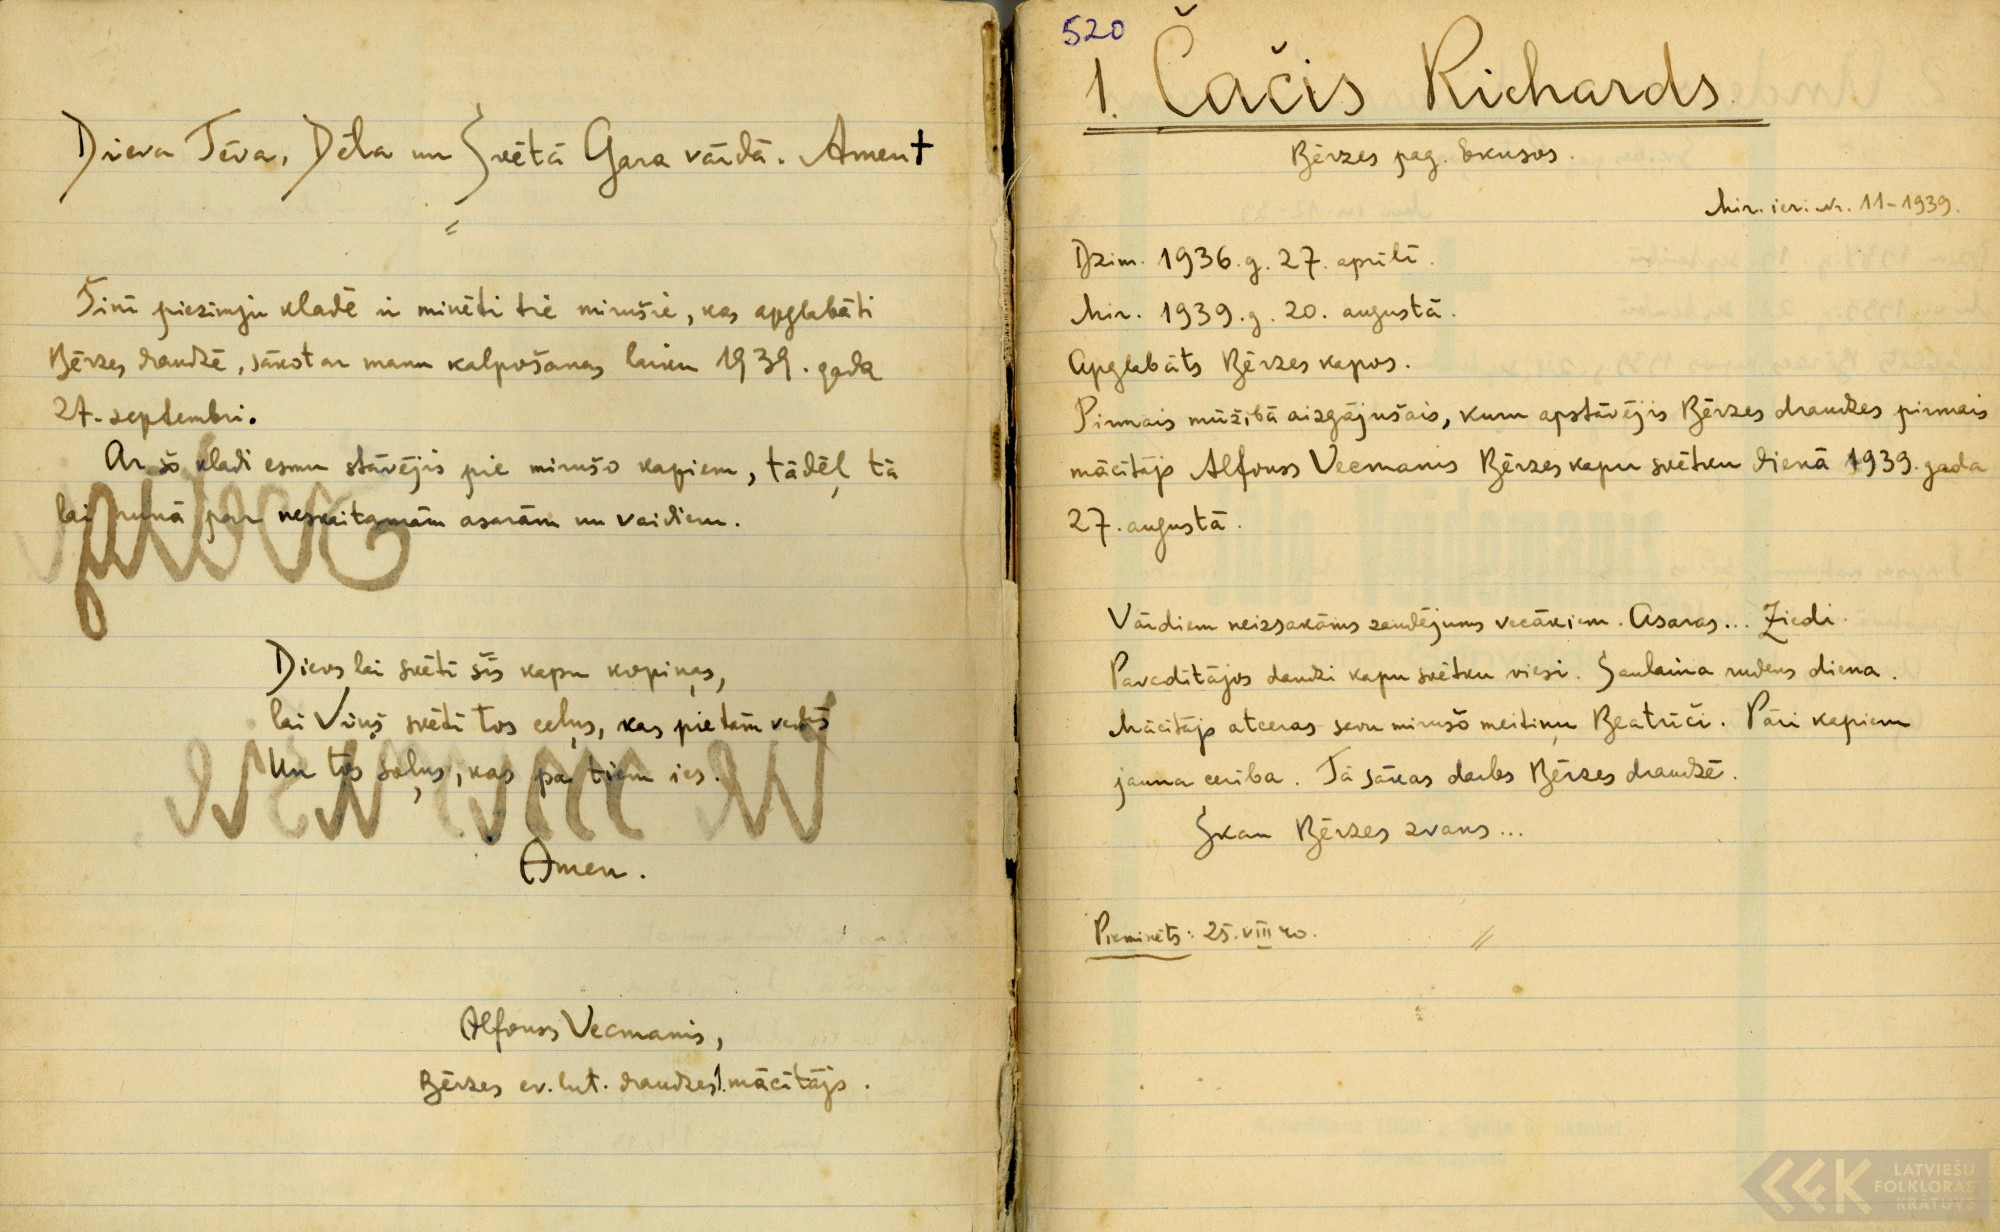 Dieva Tēva, Dēla un Svētā Gara vārdā. Amen †
Šinī piezimju kladē ir minēti tie mirušie, kas apglabāti
Bērzes draudzē, sākot ar manu kalpošanas laiku 1939. gada
27. septembri.
Ar šo kladi esmu stāvējis pie mirušo kapiem, tādēļ tā
lai runā par neskaitamām asarām un vaidiem.
Dievs lai svētī šīs kapu kopiņas,
lai Viņš svētī tos ceļus, kas pie tām vedīs
Un tos soļus, kas pa tiem ies.
Amen.
Alfonss Vecmanis,
Bērzes ev. lut. draudzes 1. mācītājs.
520
1. Čačis Richards
Bērzes pag. Ekusos.
Mir. ier. Nr. 11-1939.
Dzim. 1936. g. 27. aprīlī.
Mir. 1939. g. 20. augustā.
Apglabāts Bērzes kapos.
Pirmais mūžībā aizgājušais, kuru apstāvējis Bērzes draudzes pirmais
mācītājs Alfonss Vecmanis Bērzes kapu svētku dienā 1939. gada
27. augustā.
Vārdiem neizsakāms zaudējums vecākiem. Asaras... Ziedi.
Pavadītājos daudzi kapu svētku viesi. Saulaina rudens diena.
Mācītājs atceras savu mirušo meitiņu Beatriči. Pāri kapiem
jauna cerība. Tā sākas darbs Bērzes draudzē.
Skan Bērzes zvans...
Pieminēts: 25. VIII 40.
LATVIEŠU
FOLKLORAS
KRĀTUVE